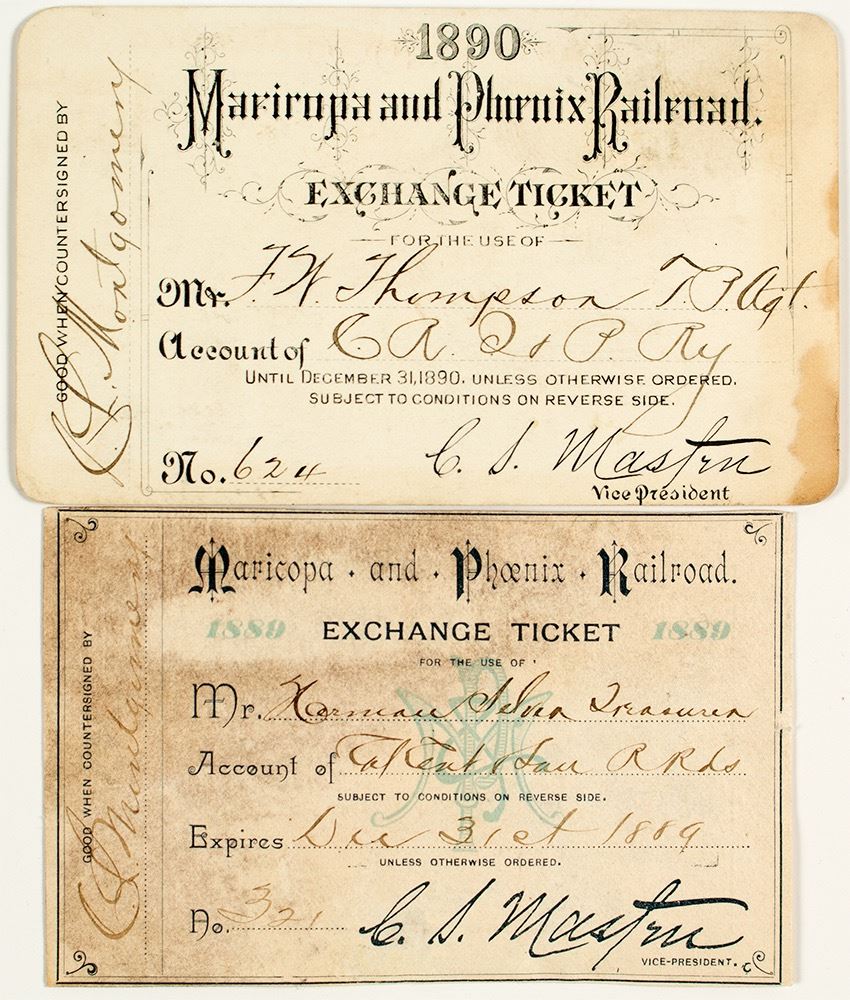 1890
Maricopa and Phœnix Railroad.
EXCHANGE TICKET
FOR THE USE OF
Mr. F. W. Thompson T. P. Agt.
Account of C R. I & P. Ry
UNTIL DECEMBER 31, 1890. UNLESS OTHERWISE ORDERED.
SUBJECT TO CONDITIONS ON REVERSE SIDE.
No. 624
C. S. Masten
Vice President
GOOD WHEN COUNTERSIGNED BY
Montgomery
Maricopa and Phœnix Railroad.
1889 EXCHANGE TICKET 1889
FOR THE USE OF
Mr. Herman Silver Treasurer
Account of Cal Cent & RRds
SUBJECT TO CONDITIONS ON REVERSE SIDE.
Expires Dec 31st 1889
UNLESS OTHERWISE ORDERED.
No. 321
C. S. Masten
VICE-PRESIDENT.
GOOD WHEN COUNTERSIGNED BY
Montgomery